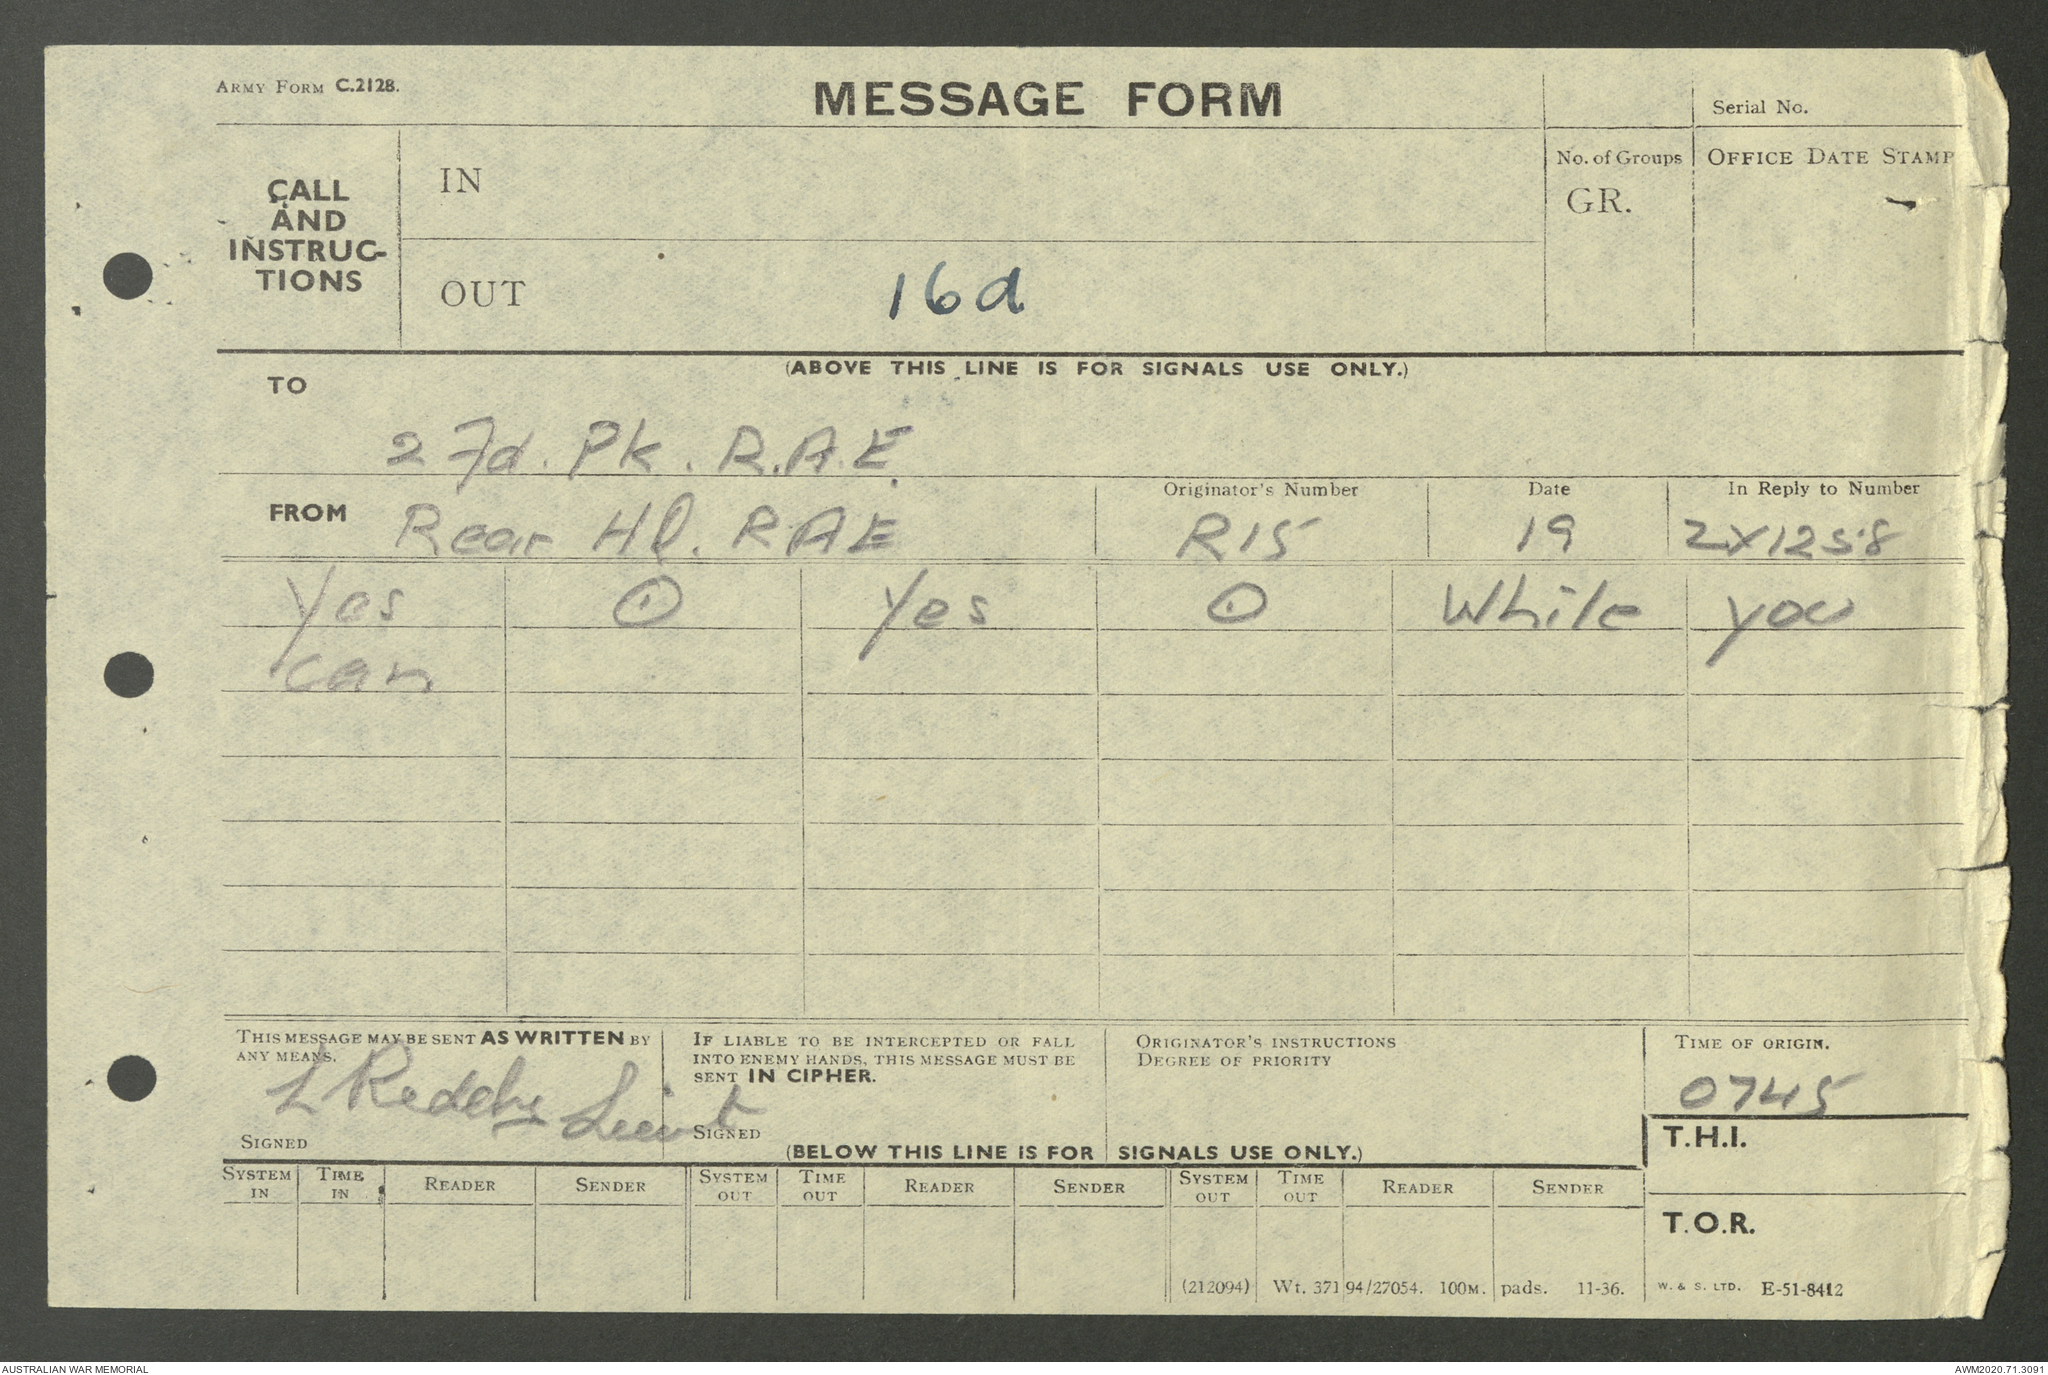 ARMY FORM C.2128.
MESSAGE FORM
Serial No.
CALL AND INSTRUC-TIONS
IN
No. of Groups
GR.
OFFICE DATE STAMP
OUT
16d
(ABOVE THIS LINE IS FOR SIGNALS USE ONLY.)
TO
2 Fd. Pk. R.A.E.
FROM
Rear HQ. RAE
Originator's Number
R15
Date
19
In Reply to Number
2X1258
Yes ⊙ Yes ⊙ While you
can
THIS MESSAGE MAY BE SENT AS WRITTEN BY
ANY MEANS.
Lieut
SIGNED
IF LIABLE TO BE INTERCEPTED OR FALL
INTO ENEMY HANDS, THIS MESSAGE MUST BE
SENT IN CIPHER.
SIGNED
ORIGINATOR'S INSTRUCTIONS
DEGREE OF PRIORITY
TIME OF ORIGIN.
0745
T.H.I.
(BELOW THIS LINE IS FOR SIGNALS USE ONLY.)
SYSTEM IN TIME IN READER SENDER SYSTEM OUT TIME OUT READER SENDER SYSTEM OUT TIME OUT READER SENDER
T.O.R.
(212094) Wt. 37194/27054. 100M. pads. 11-36. W. & S. LTD. E-51-8412
AUSTRALIAN WAR MEMORIAL
AWM2020.71.3091